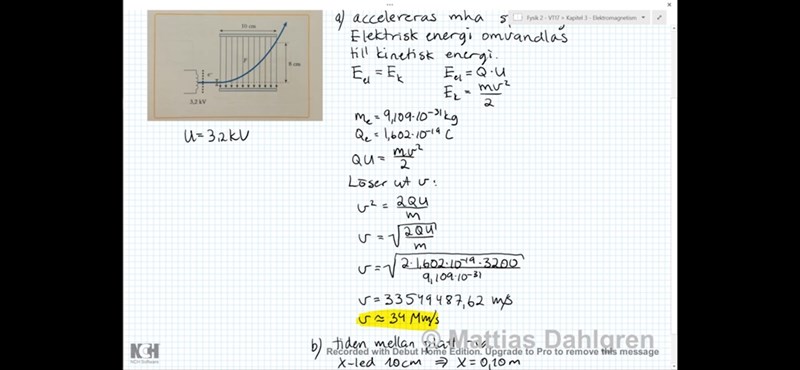 10 cm
e⁻
F
8 cm
3,2 kV
U = 3,2 kV
a) accelereras mha
Fysik 2 - VT17 » Kapitel 3 - Elektromagnetism
Elektrisk energi omvandlas
till kinetisk energi.
E_el = E_k E_el = Q·U
E_k = mv²/2
m_e = 9,109·10⁻³¹ kg
Q_e = 1,602·10⁻¹⁹ C
QU = mv²/2
Löser ut v:
v² = 2QU/m
v = √(2QU/m)
v = √(2·1,602·10⁻¹⁹·3200/9,109·10⁻³¹)
v = 33549487,62 m/s
v ≈ 34 Mm/s
b) tiden mellan
© Mattias Dahlgren
Recorded with Debut Home Edition. Upgrade to Pro to remove this message
x-led 10cm ⇒ x = 0,10 m
NCH
NCH Software